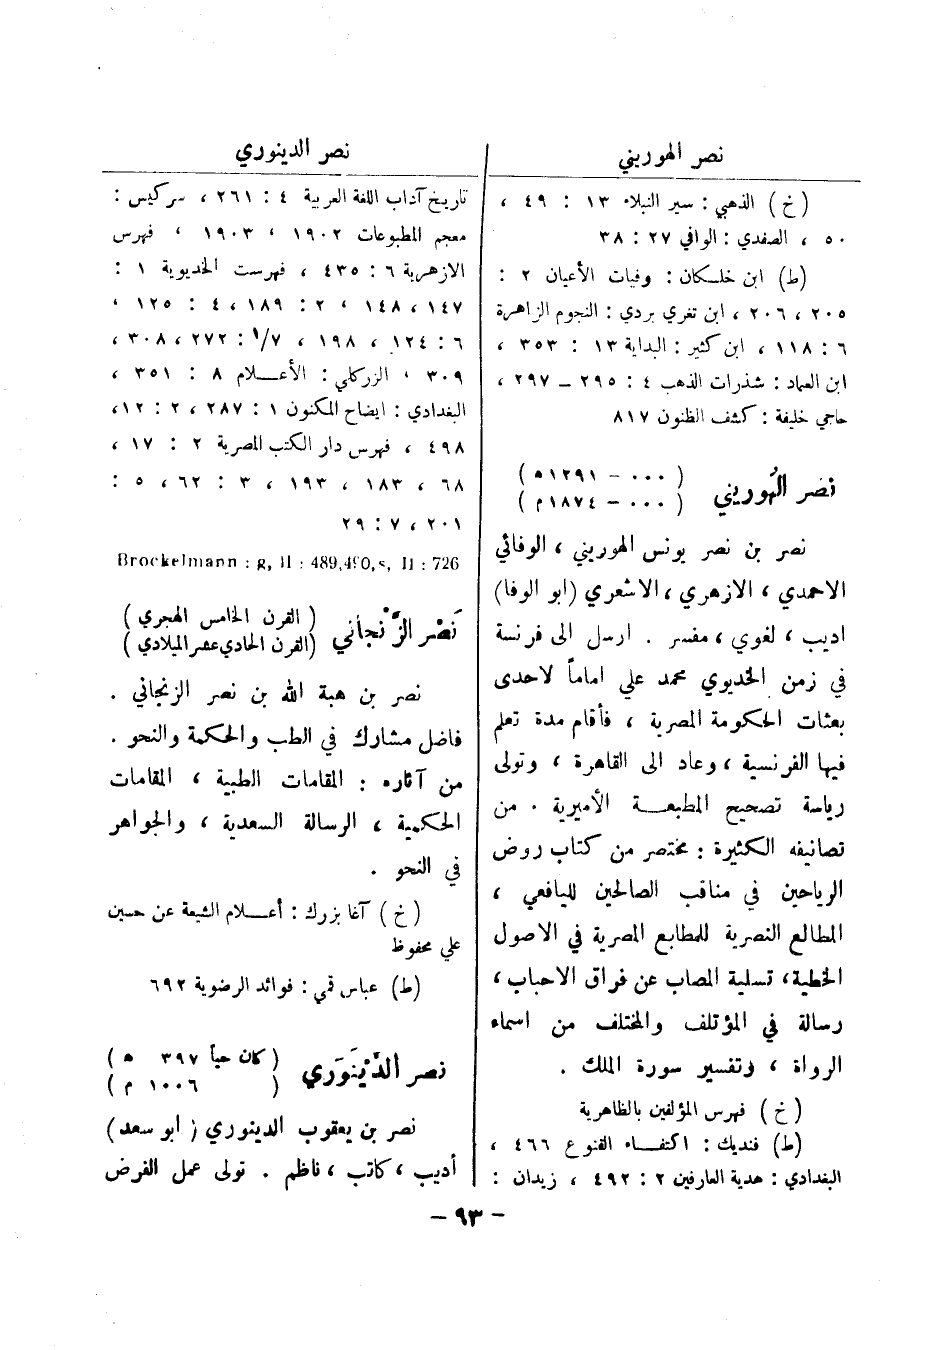 نصر الهوريني
(خ) الذهبي : سير النبلاء ١٣ : ٤٩ ،
٥٠ ، الصفدي : الوافي ٢٧ : ٣٨
(ط) ابن خلكان : وفيات الأعيان ٢ :
٢٠٥ ، ٢٠٦ ، ابن تغري بردي : النجوم الزاهرة
٦ : ١١٨ ، ابن كثير : البداية ١٣ : ٣٥٣ ،
ابن العماد : شذرات الذهب ٤ : ٢٩٥ – ٢٩٧ ،
حاجي خليفة : كشف الظنون ٨١٧
نصر الهُوريني ( ٠٠٠ – ١٢٩١ ه )
( ٠٠٠ – ١٨٧٤ م )
نصر بن نصر يونس الهوريني ، الوفائي
الاحمدي ، الازهري ، الاشعري (ابو الوفا)
اديب ، لغوي ، مفسر . ارسل الى فرنسة
في زمن الخديوي محمد علي اماماً لاحدى
بعثات الحكومة المصرية ، فأقام مدة تعلم
فيها الفرنسية ، وعاد الى القاهرة ، وتولى
رياسة تصحيح المطبعة الأميرية . من
تصانيفه الكثيرة : مختصر من كتاب روض
الرياحين في مناقب الصالحين لليافعي ،
المطالع النصرية للمطابع المصرية في الاصول
الخطية ، تسلية المصاب عن فراق الاحباب ،
رسالة في المؤتلف والمختلف من اسماء
الرواة ، وتفسير سورة الملك .
(خ) فهرس المؤلفين بالظاهرية
(ط) فنديك : اكتفاء القنوع ٤٦٦ ،
البغدادي : هدية العارفين ٢ : ٤٩٢ ، زيدان :
نصر الدينوري
تاريخ آداب اللغة العربية ٤ : ٢٦١ ، سركيس :
معجم المطبوعات ١٩٠٢ ، ١٩٠٣ ، فهرس
الازهرية ٦ : ٤٣٥ ، فهرست الخديوية ١ :
١٤٧ ، ١٤٨ ، ٢ : ١٨٩ ، ٤ : ١٢٥ ،
٦ : ١٢٤ ، ١٩٨ ، ٧/١ : ٢٧٢ ، ٣٠٨ ،
٣٠٩ ، الزركلي : الأعلام ٨ : ٣٥١ ،
البغدادي : ايضاح المكنون ١ : ٢٨٧ ، ٢ : ١٢ ،
٤٩٨ ، فهرس دار الكتب المصرية ٢ : ١٧ ،
٦٨ ، ١٨٣ ، ١٩٣ ، ٣ : ٦٢ ، ٥ :
٢٠١ ، ٧ : ٢٩
Brockelmann : g, II : 489,490,s, II : 726
نَصْر الزَّنْجاني ( القرن الخامس الهجري )
(القرن الحادي عشر الميلادي )
نصر بن هبة الله بن نصر الزنجاني .
فاضل مشارك في الطب والحكمة والنحو .
من آثاره : المقامات الطبية ، المقامات
الحكمية ، الرسالة السعدية ، والجواهر
في النحو .
(خ) آغا بزرك : أعلام الشيعة عن حسين
علي محفوظ
(ط) عباس قمي : فوائد الرضوية ٦٩٢
نصر الدَّيْنَوَري ( كان حياً ٣٩٧ ه )
( ١٠٠٦ م )
نصر بن يعقوب الدينوري ( ابو سعد )
أديب ، كاتب ، ناظم . تولى عمل الفرض
– ٩٣ –